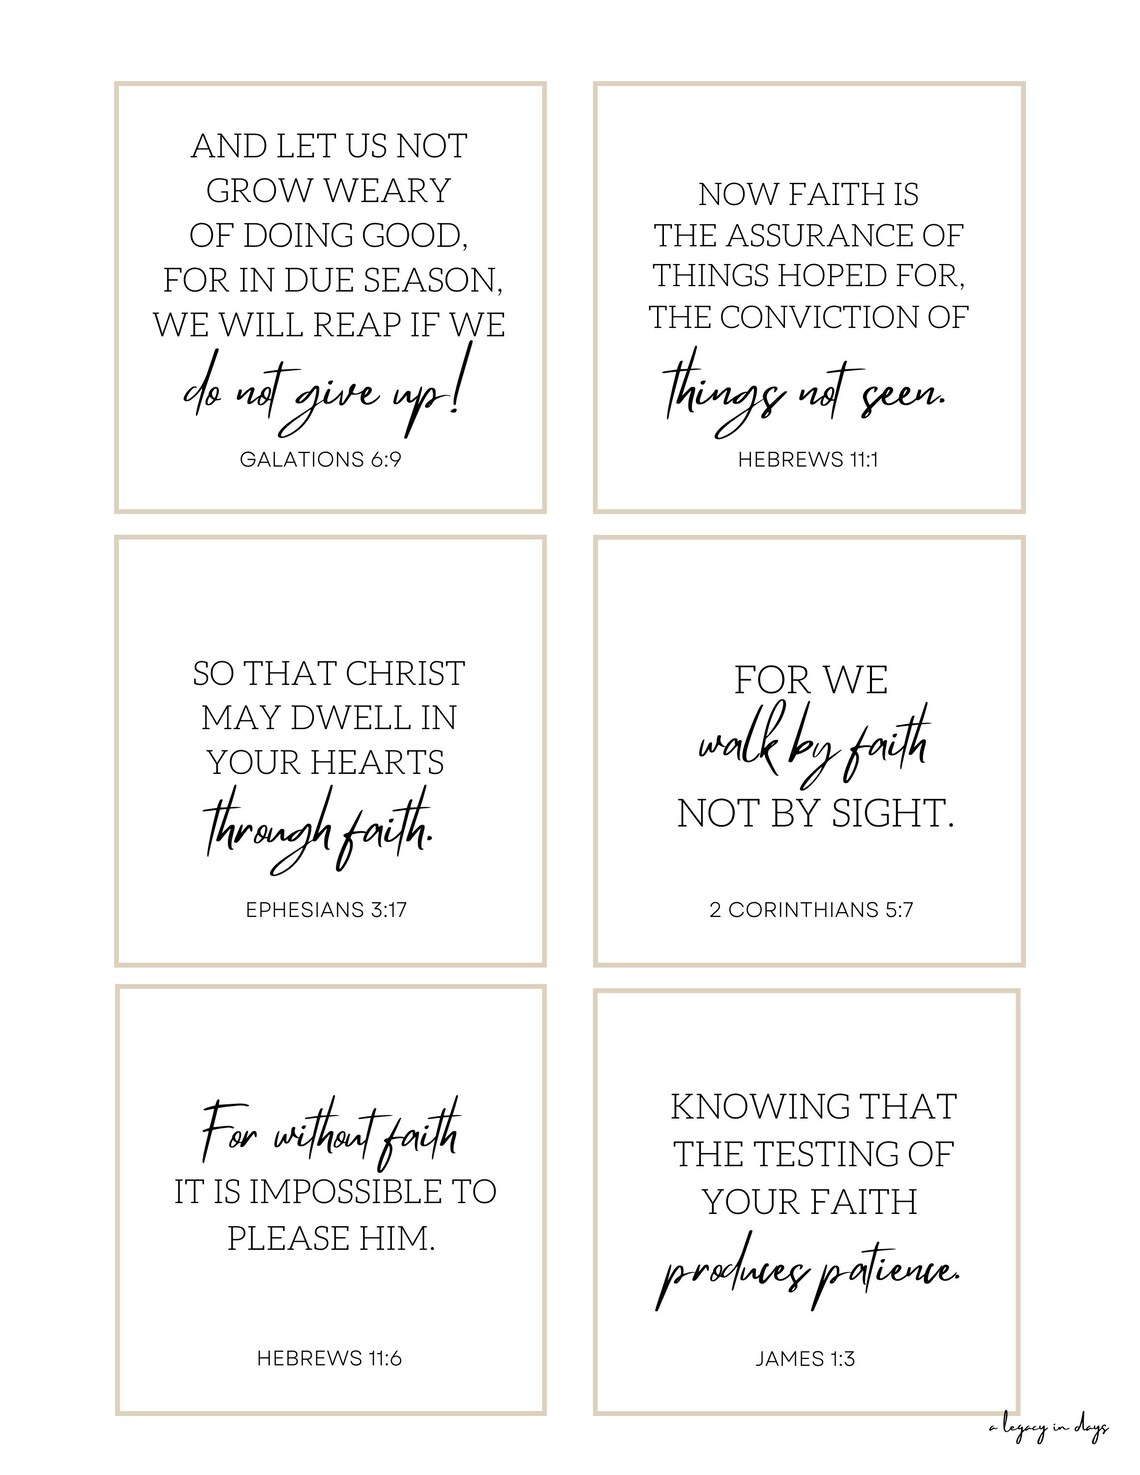 AND LET US NOT
GROW WEARY
OF DOING GOOD,
FOR IN DUE SEASON,
WE WILL REAP IF WE
do not give up!
GALATIONS 6:9
NOW FAITH IS
THE ASSURANCE OF
THINGS HOPED FOR,
THE CONVICTION OF
things not seen.
HEBREWS 11:1
SO THAT CHRIST
MAY DWELL IN
YOUR HEARTS
through faith.
EPHESIANS 3:17
FOR WE
walk by faith
NOT BY SIGHT.
2 CORINTHIANS 5:7
For without faith
IT IS IMPOSSIBLE TO
PLEASE HIM.
HEBREWS 11:6
KNOWING THAT
THE TESTING OF
YOUR FAITH
produces patience.
JAMES 1:3
a legacy in days